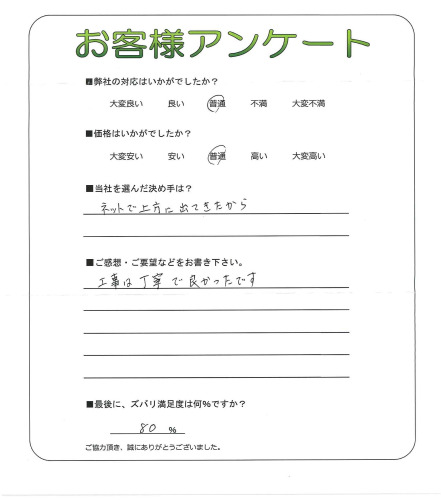 お客様アンケート
■弊社の対応はいかがでしたか?
大変良い 良い 普通 不満 大変不満
■価格はいかがでしたか?
大変安い 安い 普通 高い 大変高い
■当社を選んだ決め手は?
ネットで上方に出てきたから
■ご感想・ご要望などをお書き下さい。
工事は丁寧で良かったです
■最後に、ズバリ満足度は何%ですか?
80 %
ご協力頂き、誠にありがとうございました。